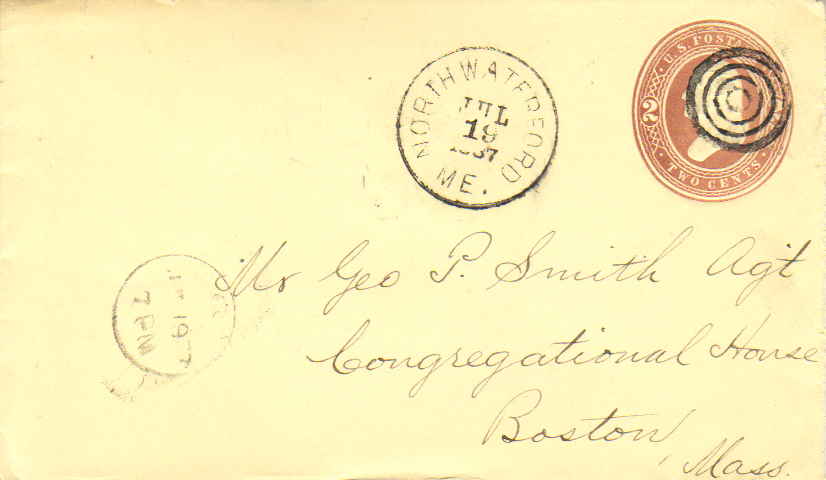 NORTH WATERFORD
JUL
19
1887
ME.
U.S. POSTA
2
TWO CENTS
Mr Geo P. Smith Agt
Congregational House
Boston,
Mass.
19
7 PM